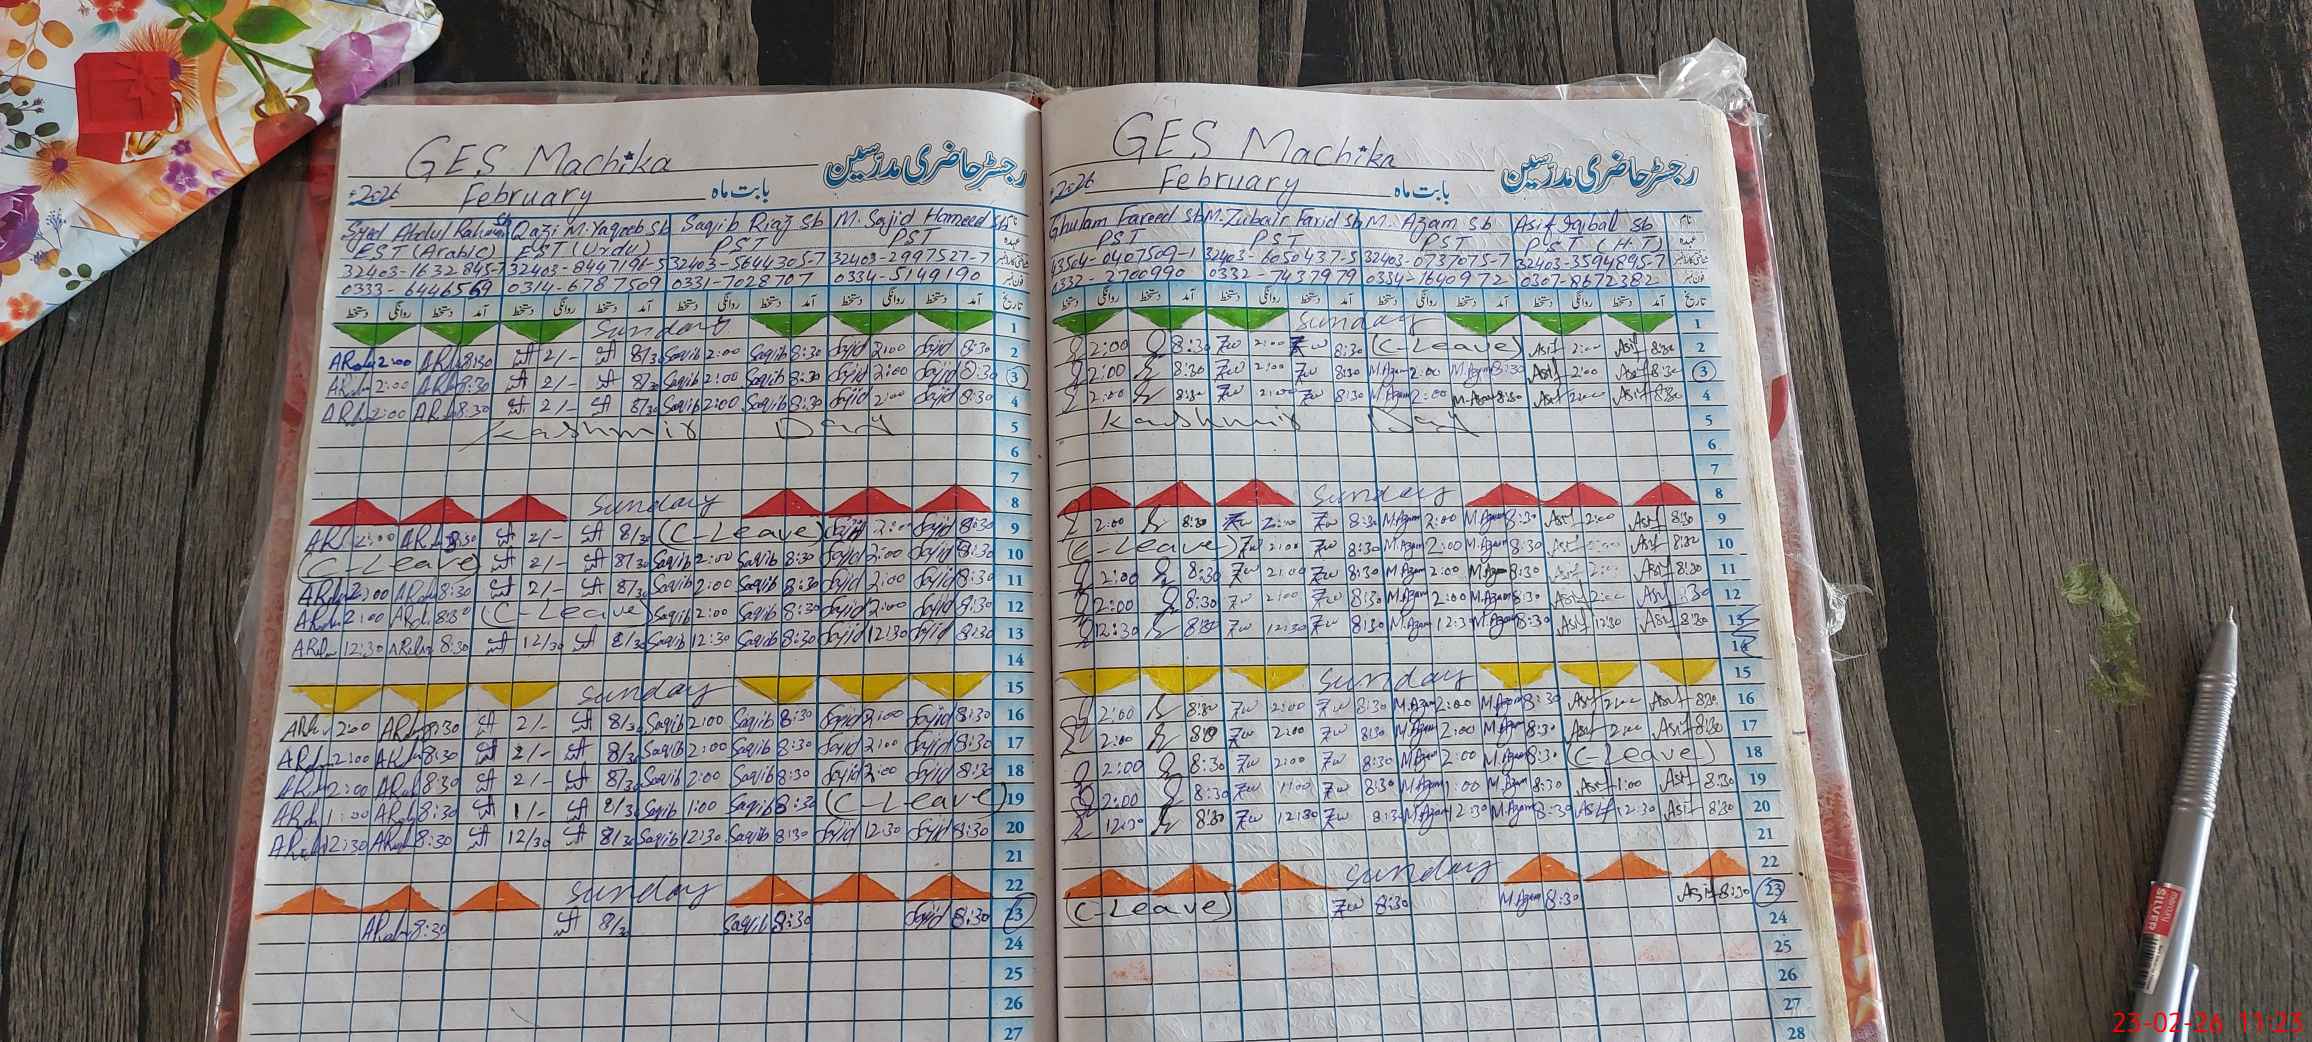 GES Machika
رجسٹر حاضری مدرسین
2026 February بابت ماہ
Syed Abdul Rahman Sb Qazi M. Yaqoob Sb Saqib Riaz Sb M. Sajid Hameed Sb نام
EST (Arabic) EST (Urdu) PST PST عہدہ
32403-1632845-7 32403-8447196-5 32403-5644305-7 32403-2997527-7
0333-6446569 0314-6787509 0331-7028707 0334-5149190 فون نمبر
دستخط روانگی دستخط آمد دستخط روانگی دستخط آمد دستخط روانگی دستخط آمد دستخط روانگی دستخط آمد تاریخ
Sunday 1
2:00 8:30 2/- 8/30 Saqib 2:00 Saqib 8:30 Sajid 2:00 Sajid 8:30 2
2:00 8:30 2/- 8/30 Saqib 2:00 Saqib 8:30 Sajid 2:00 Sajid 8:30 3
2:00 8:30 2/- 8/30 Saqib 2:00 Saqib 8:30 Sajid 2:00 Sajid 8:30 4
Kashmir Day 5
6
7
Sunday 8
2:00 8:30 2/- 8/30 (C-Leave) Sajid 2:00 Sajid 8:30 9
(C-Leave) 2/- 8/30 Saqib 2:00 Saqib 8:30 Sajid 2:00 Sajid 8:30 10
2:00 8:30 2/- 8/30 Saqib 2:00 Saqib 8:30 Sajid 2:00 Sajid 8:30 11
2:00 8:30 (C-Leave) Saqib 2:00 Saqib 8:30 Sajid 2:00 Sajid 8:30 12
12:30 8:30 12/30 8/30 Saqib 12:30 Saqib 8:30 Sajid 12:30 Sajid 8:30 13
14
Sunday 15
2:00 8:30 2/- 8/30 Saqib 2:00 Saqib 8:30 Sajid 2:00 Sajid 8:30 16
2:00 8:30 2/- 8/30 Saqib 2:00 Saqib 8:30 Sajid 2:00 Sajid 8:30 17
2:00 8:30 2/- 8/30 Saqib 2:00 Saqib 8:30 Sajid 2:00 Sajid 8:30 18
1:00 8:30 1/- 8/30 Saqib 1:00 Saqib 8:30 (C-Leave) 19
12:30 8:30 12/30 8/30 Saqib 12:30 Saqib 8:30 Sajid 12:30 Sajid 8:30 20
21
Sunday 22
8:30 8/30 Saqib 8:30 Sajid 8:30 23
24
25
26
27
GES Machika
رجسٹر حاضری مدرسین
2026 February بابت ماہ
Ghulam Fareed Sb M. Zubair Farid Sb M. Azam Sb Asif Iqbal Sb نام
PST PST PST PST (H.T) عہدہ
43504-0407509-1 32403-6050437-5 32403-0737075-7 32403-3594895-7
0332-2700990 0332-7437979 0334-1640972 0307-8672382 فون نمبر
دستخط روانگی دستخط آمد دستخط روانگی دستخط آمد دستخط روانگی دستخط آمد دستخط روانگی دستخط آمد تاریخ
Sunday 1
2:00 8:30 Zw 2:00 Zw 8:30 (C-Leave) Asif 2:00 Asif 8:30 2
2:00 8:30 Zw 2:00 Zw 8:30 M.Azam 2:00 M.Azam 8:30 Asif 2:00 Asif 8:30 3
2:00 8:30 Zw 2:00 Zw 8:30 M.Azam 2:00 M.Azam 8:30 Asif 2:00 Asif 8:30 4
Kashmir Day 5
6
7
Sunday 8
2:00 8:30 Zw 2:00 Zw 8:30 M.Azam 2:00 M.Azam 8:30 Asif 2:00 Asif 8:30 9
(C-Leave) Zw 2:00 Zw 8:30 M.Azam 2:00 M.Azam 8:30 Asif Asif 8:30 10
2:00 8:30 Zw 2:00 Zw 8:30 M.Azam 2:00 M.Azam 8:30 Asif 2:00 Asif 8:30 11
2:00 8:30 Zw 2:00 Zw 8:30 M.Azam 2:00 M.Azam 8:30 Asif 2:00 Asif 8:30 12
12:30 8:30 Zw 12:30 Zw 8:30 M.Azam 12:30 M.Azam 8:30 Asif 12:30 Asif 8:30 13
14
Sunday 15
2:00 8:30 Zw 2:00 Zw 8:30 M.Azam 2:00 M.Azam 8:30 Asif 2:00 Asif 8:30 16
2:00 8:30 Zw 2:00 Zw 8:30 M.Azam 2:00 M.Azam 8:30 Asif 2:00 Asif 8:30 17
2:00 8:30 Zw 2:00 Zw 8:30 M.Azam 2:00 M.Azam 8:30 (C-Leave) 18
2:00 8:30 Zw 1:00 Zw 8:30 M.Azam 1:00 M.Azam 8:30 Asif 1:00 Asif 8:30 19
12:30 8:30 Zw 12:30 Zw 8:30 M.Azam 12:30 M.Azam 8:30 Asif 12:30 Asif 8:30 20
21
Sunday 22
(C-Leave) Zw 8:30 M.Azam 8:30 Asif 8:30 23
24
25
26
27
28
SILVER
23-02-26 11:23